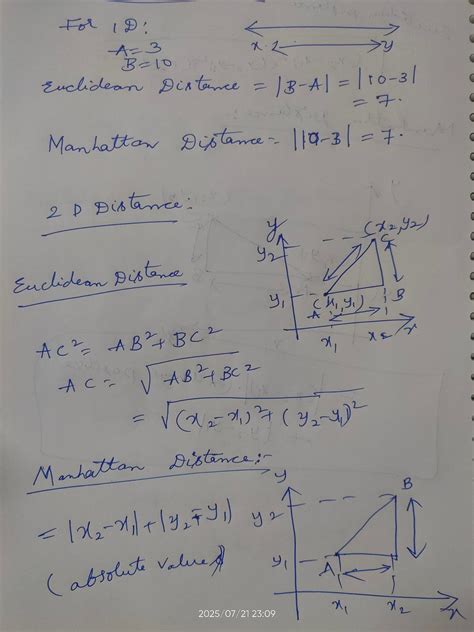 For 1D:
A = 3
B = 10
x 2 y
Euclidean Distance = |B-A| = |10-3|
= 7.
Manhattan Distance = |10-3| = 7.
2 D Distance:
y
(x2, y2)
C
y2
Euclidean Distance
y1
(x1, y1)
A
B
x1 x2 x
AC² = AB² + BC²
AC = √AB² + BC²
= √(x2-x1)² + (y2-y1)²
Manhattan Distance:-
y
B
y2
= |x2-x1| + |y2-y1|
y1
A
(absolute values)
x1 x2 x
2025/07/21 23:09